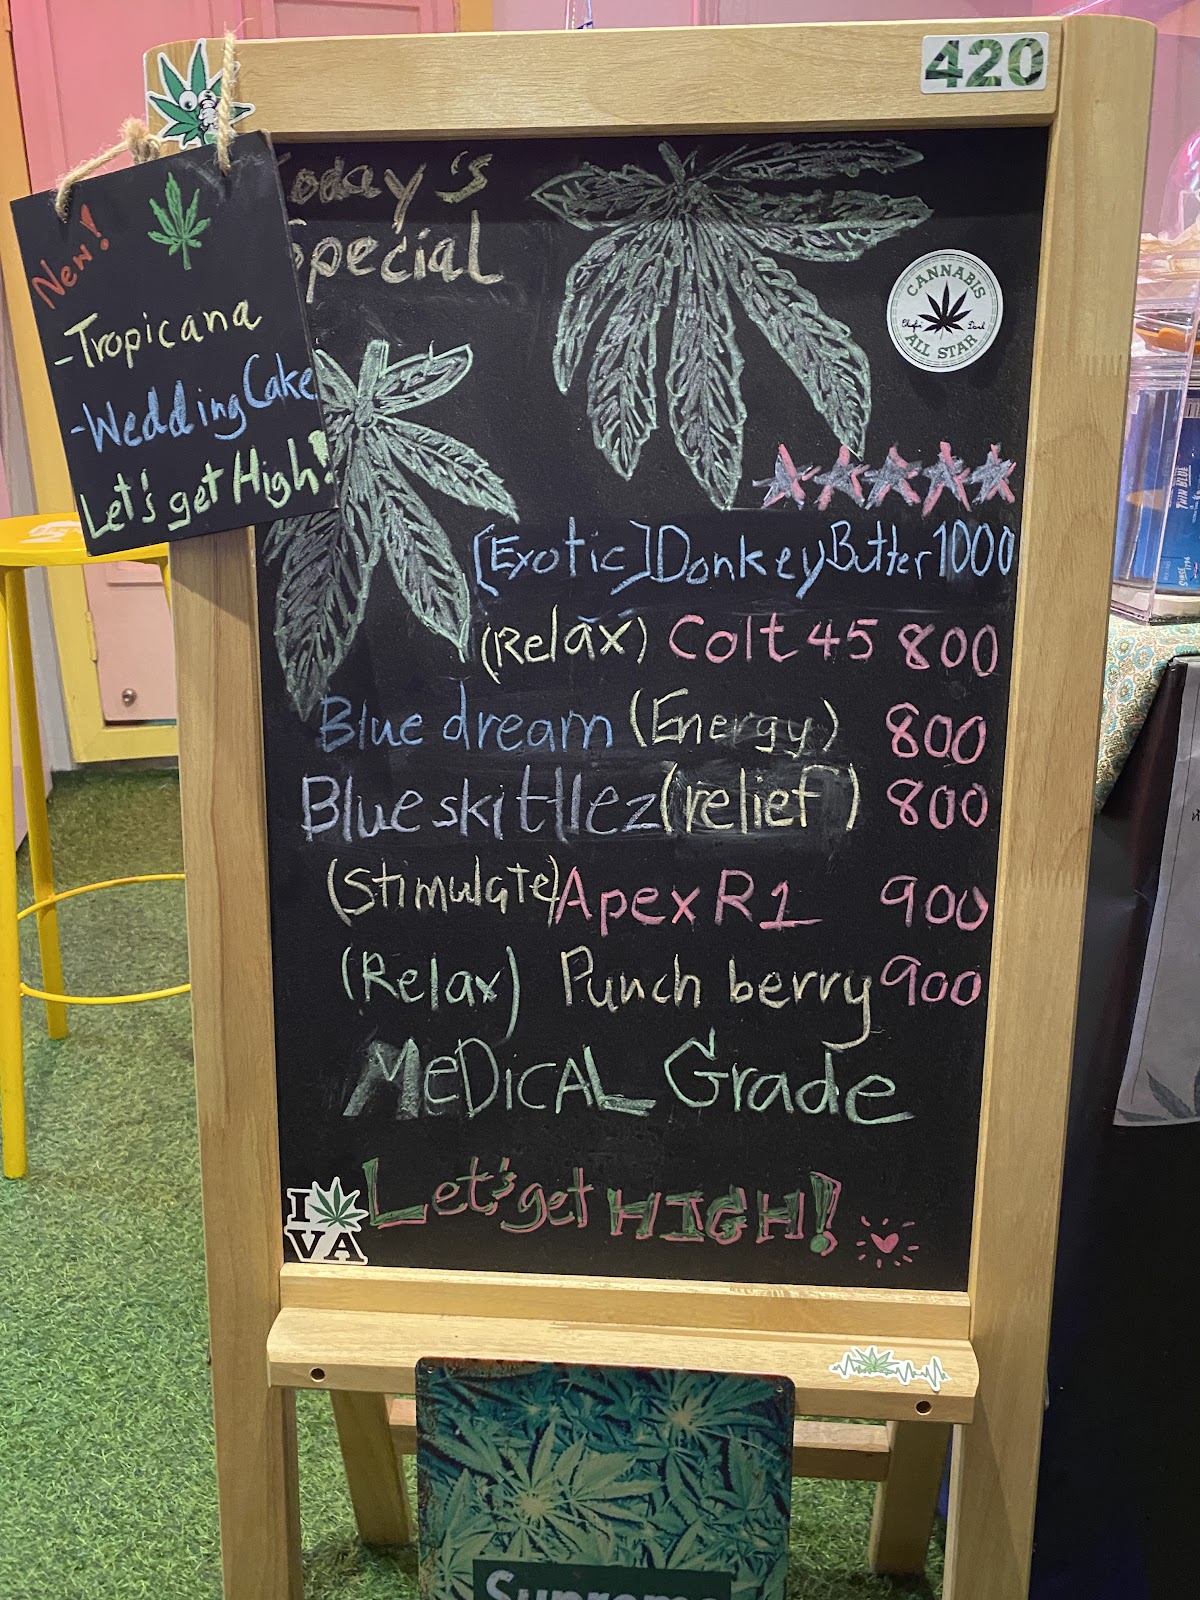 420
Today's
Special
New!
-Tropicana
-Wedding Cake
Let's get High!
CANNABIS
ALL STAR
[Exotic] Donkey Butter 1000
(Relax) Colt 45 800
Blue dream (Energy) 800
Blue skittlez (relief) 800
(Stimulate) Apex R1 900
(Relax) Punch berry 900
MeDiCAL Grade
Let's get HIGH!
I
VA
Supreme